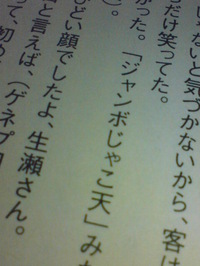 いないと気づかないから、客は
らだけ笑ってた。
がった。「ジャンボじゃこ天」みた
)。
ひどい顔でしたよ、生瀬さん。
と言えば、(ゲネプロ
って、初め